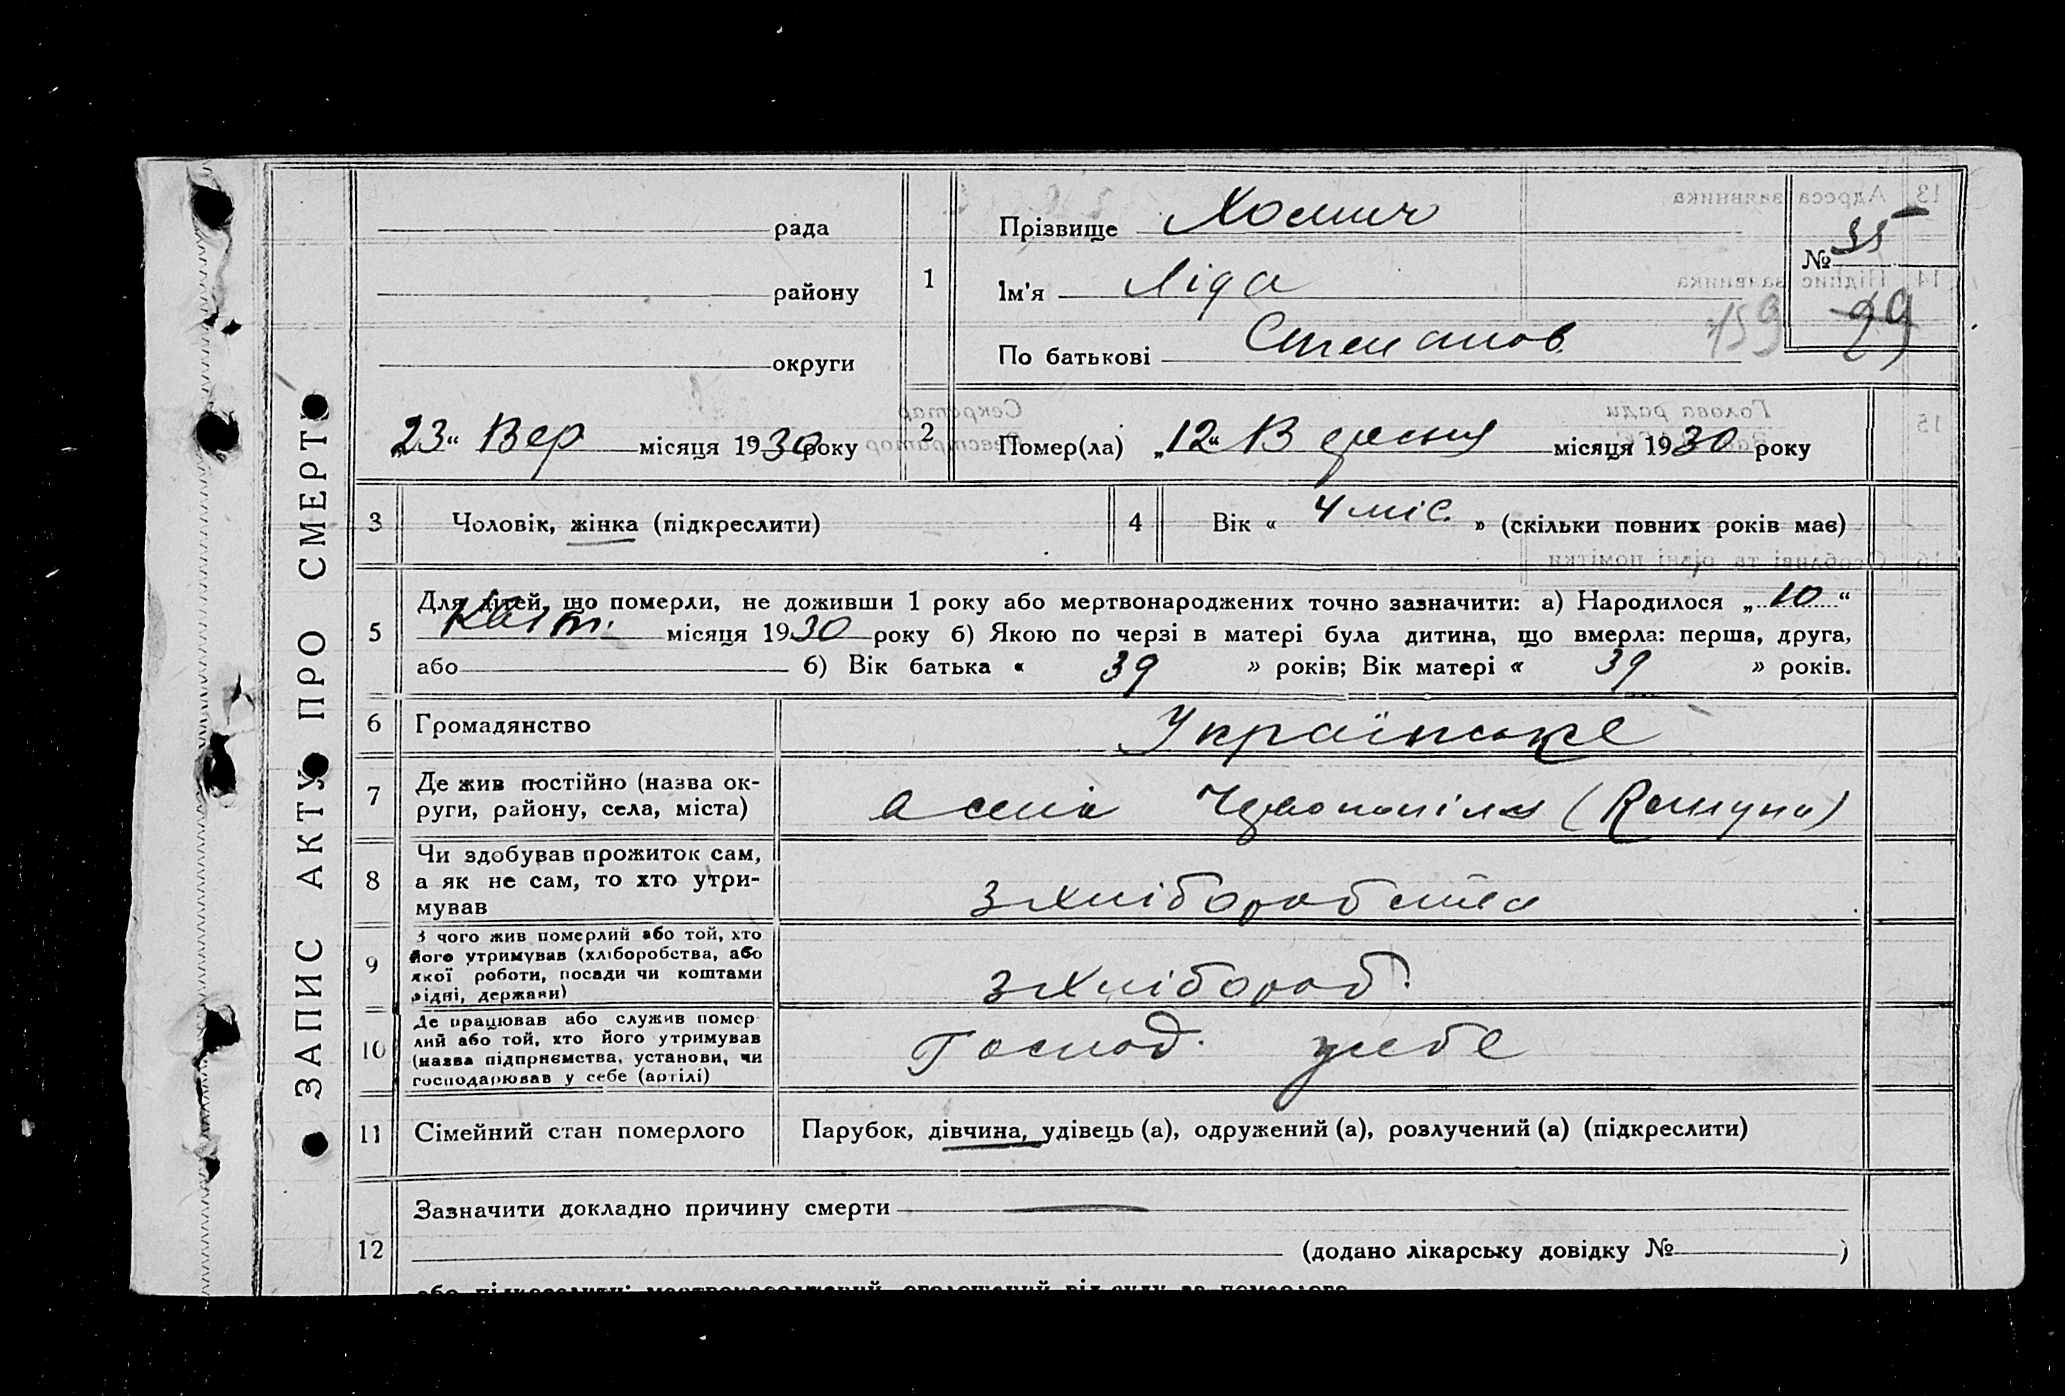 ЗАПИС АКТУ ПРО СМЕРТЬ
рада
району
округи
„23“ Вер місяця 1930 року
1
Прізвище Хомич
Ім'я Ліда
По батькові Степанов
№ 35
29
159
2
Помер(ла) „12“ Вересня місяця 1930 року
3 Чоловік, жінка (підкреслити)
4 Вік « 4 міс. » (скільки повних років має)
5 Для дітей, що померли, не доживши 1 року або мертвонароджених точно зазначити: а) Народилося „10“
Квітн. місяця 1930 року б) Якою по черзі в матері була дитина, що вмерла: перша, друга,
або б) Вік батька « 39 » років; Вік матері « 39 » років.
6 Громадянство Українське
7 Де жив постійно (назва ок-
руги, району, села, міста)
8 Чи здобував прожиток сам,
а як не сам, то хто утри-
мував
з хліборобства
9 З чого жив померлий або той, хто
його утримував (хліборобства, або
якої роботи, посади чи коштами
рідні, держави)
з хлібороб.
10 Де працював або служив помер
лий або той, хто його утримував
(назва підприємства, установи, чи
господарював у себе (артілі)
Господ. у себе
11 Сімейний стан померлого Парубок, дівчина, удівець (а), одружений (а), розлучений (а) (підкреслити)
12 Зазначити докладно причину смерти
(додано лікарську довідку № )
13 Адреса заявника
14 Підпис заявника
15 Голова ради
Секретар
16 Особливі та різні помітки